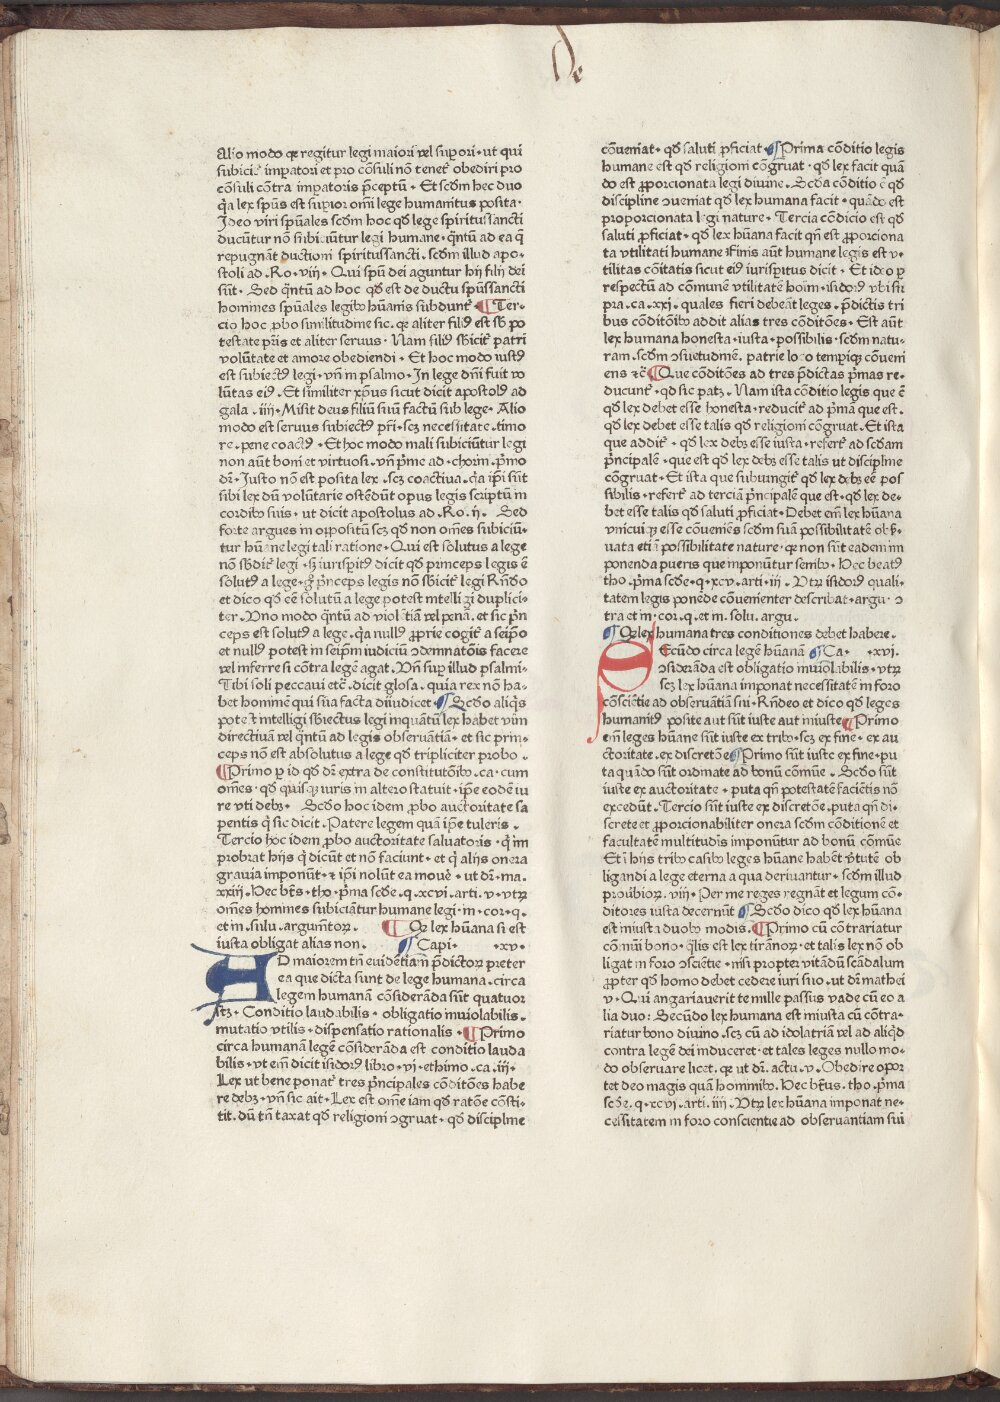 De
Alio modo qꝛ regitur legi maiori vel supiori· ut qui
subicit᷑ impatori et pro cōsuli nō tenet᷑ obediri pro
cōsuli cōtra impatoris p̄ceptū· Et scdm hec duo
q̄a lex spūs est supior om̄i lege humanitus posita·
Ideo viri spūales scdm hoc qđ lege spiritussancti
ducūtur nō subiciūtur legi humane· qn̄tū ad ea q̄
repugnāt ductioni spiritussancti. scdm illud apo-
stoli ad .Ro· viij· Qui spū dei aguntur hij filij dei
sūt· Sed qn̄tū ad hoc qđ est de ductu spūssancti
homines spūales legibꝰ hūanis subdunt᷑· ¶Ter-
cio hoc ꝓbo similitudine sic. qꝛ aliter filiꝰ est sb̄ po
testate pr̄is et aliter seruus· Nam filiꝰ sb̄icit᷑ patri
volūtate et amore obediendi· Et hoc modo iustꝰ
est subiectꝰ legi· vn̄ in psalmo· In lege dn̄i fuit vo
lūtas eiꝰ. Et similiter xp̄us sicut dicit apostolꝰ ad
gala .iiij· Misit deus filiū suū factū sub lege· Alio
modo est seruus subiectꝰ pr̄i· scꝫ necessitate. timo
re· pene coactꝰ· Et hoc modo mali subiciūtur legi
non aūt boni et virtuosi· vn̄ p̄me ad· thorim· p̄mo
dr̄· Iusto nō est posita lex .scꝫ coactiua· q̄a ip̄i sūt
sibi lex dū volūtarie ostēdūt opus legis scriptū in
cordibꝰ suis· ut dicit apostolus ad .Ro. ij. Sed
forte argues in oppositū scꝫ qđ non om̄es subiciū-
tur hūane legi tali ratione· Qui est solutus a lege
nō sb̄dit᷑ legi· sꝫ iurisp̄itꝰ dicit qđ princeps legis ē
solutꝰ a lege· gͦ p̄nceps legis nō sb̄icit᷑ legi Rn̄deo
et dico qđ eē solutū a lege potest intelligi duplici-
ter· Vno modo qn̄tū ad violētiā vel pena· et sic pn̄
ceps est solutꝰ a lege. q̄a nullꝰ ꝓprie cogit᷑ a seip̄o
et nullꝰ potest in seip̄m iudiciū ↄdemnatōis facere
vel inferre si cōtra legē agat. Vn̄ sup illud psalmi·
Tibi soli peccaui etc̄· dicit glosa. quia rex nō ha-
bet hominē qui sua facta diiudicet· ¶Scdo aliqͥs
potest intelligi sb̄iectus legi inquātū lex habet vim
directiuā vel qn̄tū ad legis obseruātiā· et sic prin-
ceps nō est absolutus a lege qđ tripliciter probo·
¶Primo p id qđ dr̄ extra de constitutōibꝰ .ca· cum
om̄es· qđ quisqꝫ iuris in altero statuit· ip̄e eodē iu
re vti debꝫ· Scdo hoc idem ꝓbo auctoritate sa
pentis q̄ sic dicit. Patere legem quā ip̄e tuleris·
Tercio hoc idem ꝓbo auctoritate saluatoris· qͥ im
probrat hijs qͥ dicūt et nō faciunt· et qͥ alijs onera
grauia imponūt· ⁊ ip̄i nolūt ea mouē· ut dr̄· ma·
xxiij. Hec bt̄s· tho· p̄ma scđe. q. xcvi. arti. v· vtꝝ
om̄es homines subiciātur humane legi· in· cor· q·
et in· sulu· argum̄torꝝ· ¶Qꝙ lex hūana si est
iusta obligat alias non· ¶Capi· ·xv·
AD maiorem tn̄ euidētiam p̄dictorꝝ preter
ea que dicta sunt de lege humana· circa
legem humanā cōsiderāda sūt quatuor
scꝫ· Conditio laudabilis· obligatio inuiolabilis·
mutatio vtilis· dispensatio rationalis· ¶Primo
circa humanā legē cōsiderāda est conditio lauda
bilis· vt em̄ dicit isidorꝰ libro· vi· ethimo· ca· iij·
Lex ut bene ponat᷑ tres p̄ncipales cōditōes habe
re debꝫ· vn̄ sic ait· Lex est om̄e iam qđ ratōe cōsti-
tit. dū tn̄ taxat qđ religioni ↄgruat· qđ discipline
cōueniat· qđ saluti ꝓficiat ¶Prima cōditio legis
humane est qđ religioni cōgruat· qđ lex facit quā
do est ꝓporcionata legi diuine· Scđa cōditio ē qđ
discipline ↄueniat qđ lex humana facit· quādo est
proporcionata legi nature· Tercia condicio est qđ
saluti ꝓficiat· qđ lex hūana facit qn̄ est ꝓporciona
ta vtilitati humane· Finis aūt humane legis est v-
tilitas cōitatis sicut eiꝰ iurisp̄itus dicit· Et ideo ꝑ
respectū ad cōmune vtilitatē hoim· isidorꝰ vbi su
pra. ca. xxi. quales fieri debeāt leges· p̄dictis tri
bus cōditōibꝰ addit alias tres cōditōes· Est aūt
lex humana honesta· iusta· possibilis· scdm natu-
ram· scdm ↄsuetudinē. patrie loco tempiqꝫ cōueni
ens ⁊c̄ ¶Que cōditōes ad tres p̄dictas p̄mas re-
ducunt᷑· qđ sic patꝫ. Nam ista cōditio legis que ē
qđ lex debet esse honesta· reducit᷑ ad p̄mā que est·
qđ lex debet esse talis qđ religioni cōgruat· Et ista
que addit᷑· qđ lex debꝫ esse iusta· refert᷑ ad scdam
p̄ncipalē· que est qđ lex debꝫ esse talis ut discipline
cōgruat· Et ista que subiungit᷑ qđ lex debꝫ eē pos
sibilis· refert᷑ ad terciā p̄ncipalē que est· qđ lex de-
bet esse talis qđ saluti ꝓficiat· Debet em̄ lex hūana
vnicuiqꝫ esse cōueniēs scdm suā possibilitatē obser-
uata etiā possibilitate nature· qꝛ non sūt eadem im
ponenda pueris que imponūtur senibꝰ· Hec beatꝰ
tho· p̄ma scđe· q· xcv. arti· iij· Vtꝝ isidorꝰ quali-
tatem legis ponēde cōuenienter describat· argu· ↄ
tra et in· cor· q· et in· solu. argu.
¶Qꝙ lex humana tres conditiones debet habere·
SEcūdo circa legē hūanā ¶Ca· ·xvi.
ↄsiderāda est obligatio inuiolabilis· vtꝝ
scꝫ lex hūana imponat necessitatē in foro
cōsciētie ad obseruātiā sui· Rn̄deo et dico qđ leges
humanitꝰ posite aut sūt iuste aut iniuste ¶Primo
em̄ leges hūane sūt iuste ex tribꝰ· scꝫ ex fine· ex au
ctoritate· ex discretōe ¶Primo sūt iuste ex fine· pu
ta quādo sūt ordinate ad bonū cōmūe· Scđo sūt
iuste ex auctoritate· puta qn̄ potestatē faciētis nō
excedūt· Tercio sūt iuste ex discretōe· puta qn̄ di-
screte et ꝓporcionabiliter onera scdm cōditionē et
facultatē multitudis imponūtur ad bonū cōmūe
Et ī hijs tribꝰ casibꝰ leges hūane habēt v̄tutē ob
ligandi a lege eterna a qua deriuantur· scdm illud
prouibiorꝝ. viij· Per me reges regnāt et legum cō-
ditores iusta decernūt ¶Scđo dico qđ lex hūana
est iniusta duobꝰ modis· ¶Primo cū cōtrariatur
cōmūi bono· q̄lis est lex tirānorꝝ· et talis lex nō ob
ligat in foro ↄsciētie· nisi propter vitādū scādalum
ꝓpter qđ homo debet cedere iuri suo· ut dr̄ mathei
v· Qui angariauerit te mille passus vade cū eo a
lia duo: Secūdo lex humana est iniusta cū cōtra-
riatur bono diuino· scꝫ cū ad idolatriā vel ad aliqđ
contra legē dei induceret· et tales leges nullo mo-
do obseruare licet. qꝛ ut dr̄. actu. v· Obedire opor
tet deo magis quā hominibꝰ. Hec bt̄us. tho. p̄ma
scđe. q· xcvi· arti. iiij. Vtꝝ lex hūana imponat ne-
cessitatem in foro conscientie ad obseruantiam sui